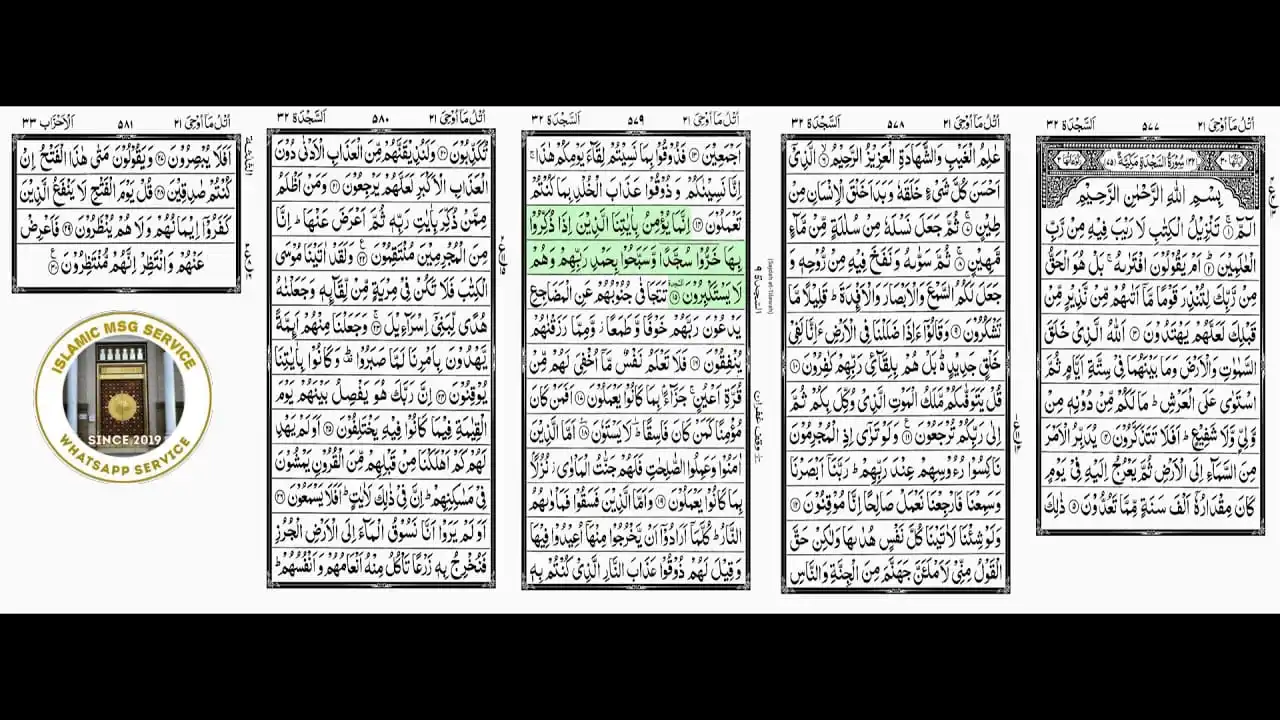 اُتْلُ مَاۤ اُوْحِیَ ۲۱
۵۷۷
اَلسَّجْدَة ۳۲
بِسْمِ اللّٰهِ الرَّحْمٰنِ الرَّحِیْمِ
الٓمّٓ ۚ۱ تَنْزِیْلُ الْكِتٰبِ لَا رَیْبَ فِیْهِ مِنْ رَّبِّ
الْعٰلَمِیْنَ ؕ۲ اَمْ یَقُوْلُوْنَ افْتَرٰىهُ ۚ بَلْ هُوَ الْحَقُّ
مِنْ رَّبِّكَ لِتُنْذِرَ قَوْمًا مَّاۤ اَتٰىهُمْ مِّنْ نَّذِیْرٍ مِّنْ
قَبْلِكَ لَعَلَّهُمْ یَهْتَدُوْنَ ۳ اَللّٰهُ الَّذِیْ خَلَقَ
السَّمٰوٰتِ وَ الْاَرْضَ وَ مَا بَیْنَهُمَا فِیْ سِتَّةِ اَیَّامٍ ثُمَّ
اسْتَوٰى عَلَى الْعَرْشِ ؕ مَا لَكُمْ مِّنْ دُوْنِهٖ مِنْ
وَّلِیٍّ وَّ لَا شَفِیْعٍ ؕ اَفَلَا تَتَذَكَّرُوْنَ ۴ یُدَبِّرُ الْاَمْرَ
مِنَ السَّمَآءِ اِلَى الْاَرْضِ ثُمَّ یَعْرُجُ اِلَیْهِ فِیْ یَوْمٍ
كَانَ مِقْدَارُهٗۤ اَلْفَ سَنَةٍ مِّمَّا تَعُدُّوْنَ ۵ ذٰلِكَ
اُتْلُ مَاۤ اُوْحِیَ ۲۱
۵۷۸
اَلسَّجْدَة ۳۲
عٰلِمُ الْغَیْبِ وَ الشَّهَادَةِ الْعَزِیْزُ الرَّحِیْمُ ۙ۶ الَّذِیْۤ
اَحْسَنَ كُلَّ شَیْءٍ خَلَقَهٗ وَ بَدَاَ خَلْقَ الْاِنْسَانِ مِنْ
طِیْنٍ ۚ۷ ثُمَّ جَعَلَ نَسْلَهٗ مِنْ سُلٰلَةٍ مِّنْ مَّآءٍ
مَّهِیْنٍ ۚ۸ ثُمَّ سَوّٰىهُ وَ نَفَخَ فِیْهِ مِنْ رُّوْحِهٖ وَ
جَعَلَ لَكُمُ السَّمْعَ وَ الْاَبْصَارَ وَ الْاَفْـِٕدَةَ ؕ قَلِیْلًا مَّا
تَشْكُرُوْنَ ۹ وَ قَالُوْۤا ءَاِذَا ضَلَلْنَا فِی الْاَرْضِ ءَاِنَّا لَفِیْ
خَلْقٍ جَدِیْدٍ ؕ۬ بَلْ هُمْ بِلِقَآئِ رَبِّهِمْ كٰفِرُوْنَ ۱۰
قُلْ یَتَوَفّٰىكُمْ مَّلَكُ الْمَوْتِ الَّذِیْ وُكِّلَ بِكُمْ ثُمَّ
اِلٰى رَبِّكُمْ تُرْجَعُوْنَ ۱۱ وَ لَوْ تَرٰۤى اِذِ الْمُجْرِمُوْنَ
نَاكِسُوْا رُءُوْسِهِمْ عِنْدَ رَبِّهِمْ ؕ رَبَّنَاۤ اَبْصَرْنَا
وَ سَمِعْنَا فَارْجِعْنَا نَعْمَلْ صَالِحًا اِنَّا مُوْقِنُوْنَ ۱۲
وَ لَوْ شِئْنَا لَاٰتَیْنَا كُلَّ نَفْسٍ هُدٰىهَا وَ لٰكِنْ حَقَّ
الْقَوْلُ مِنِّیْ لَاَمْلَـَٔنَّ جَهَنَّمَ مِنَ الْجِنَّةِ وَ النَّاسِ
اُتْلُ مَاۤ اُوْحِیَ ۲۱
۵۷۹
اَلسَّجْدَة ۳۲
اَجْمَعِیْنَ ۱۳ فَذُوْقُوْا بِمَا نَسِیْتُمْ لِقَآءَ یَوْمِكُمْ هٰذَا ۚ
اِنَّا نَسِیْنٰكُمْ وَ ذُوْقُوْا عَذَابَ الْخُلْدِ بِمَا كُنْتُمْ
تَعْمَلُوْنَ ۱۴ اِنَّمَا یُؤْمِنُ بِاٰیٰتِنَا الَّذِیْنَ اِذَا ذُكِّرُوْا
بِهَا خَرُّوْا سُجَّدًا وَّ سَبَّحُوْا بِحَمْدِ رَبِّهِمْ وَ هُمْ
لَا یَسْتَكْبِرُوْنَ ۱۵ تَتَجَافٰى جُنُوْبُهُمْ عَنِ الْمَضَاجِعِ
یَدْعُوْنَ رَبَّهُمْ خَوْفًا وَّ طَمَعًا ؗ وَّ مِمَّا رَزَقْنٰهُمْ
یُنْفِقُوْنَ ۱۶ فَلَا تَعْلَمُ نَفْسٌ مَّاۤ اُخْفِیَ لَهُمْ مِّنْ
قُرَّةِ اَعْیُنٍ ۚ جَزَآءًۢ بِمَا كَانُوْا یَعْمَلُوْنَ ۱۷ اَفَمَنْ كَانَ
مُؤْمِنًا كَمَنْ كَانَ فَاسِقًا ؔؕ لَا یَسْتَوٗنَ ۱۸ اَمَّا الَّذِیْنَ
اٰمَنُوْا وَ عَمِلُوا الصّٰلِحٰتِ فَلَهُمْ جَنّٰتُ الْمَاْوٰى ؗ نُزُلًۢا
بِمَا كَانُوْا یَعْمَلُوْنَ ۱۹ وَ اَمَّا الَّذِیْنَ فَسَقُوْا فَمَاْوٰىهُمُ
النَّارُ ؕ كُلَّمَاۤ اَرَادُوْۤا اَنْ یَّخْرُجُوْا مِنْهَاۤ اُعِیْدُوْا فِیْهَا
وَ قِیْلَ لَهُمْ ذُوْقُوْا عَذَابَ النَّارِ الَّذِیْ كُنْتُمْ بِهٖ
اُتْلُ مَاۤ اُوْحِیَ ۲۱
۵۸۰
اَلسَّجْدَة ۳۲
تُكَذِّبُوْنَ ۲۰ وَ لَنُذِیْقَنَّهُمْ مِّنَ الْعَذَابِ الْاَدْنٰى دُوْنَ
الْعَذَابِ الْاَكْبَرِ لَعَلَّهُمْ یَرْجِعُوْنَ ۲۱ وَ مَنْ اَظْلَمُ
مِمَّنْ ذُكِّرَ بِاٰیٰتِ رَبِّهٖ ثُمَّ اَعْرَضَ عَنْهَا ؕ اِنَّا
مِنَ الْمُجْرِمِیْنَ مُنْتَقِمُوْنَ ۲۲ وَ لَقَدْ اٰتَیْنَا مُوْسَى
الْكِتٰبَ فَلَا تَكُنْ فِیْ مِرْیَةٍ مِّنْ لِّقَآئِهٖ وَ جَعَلْنٰهُ
هُدًى لِّبَنِیْۤ اِسْرَآءِیْلَ ۚ۲۳ وَ جَعَلْنَا مِنْهُمْ اَئِمَّةً
یَّهْدُوْنَ بِاَمْرِنَا لَمَّا صَبَرُوْا ؕ۫ وَ كَانُوْا بِاٰیٰتِنَا
یُوْقِنُوْنَ ۲۴ اِنَّ رَبَّكَ هُوَ یَفْصِلُ بَیْنَهُمْ یَوْمَ
الْقِیٰمَةِ فِیْمَا كَانُوْا فِیْهِ یَخْتَلِفُوْنَ ۲۵ اَوَ لَمْ یَهْدِ
لَهُمْ كَمْ اَهْلَكْنَا مِنْ قَبْلِهِمْ مِّنَ الْقُرُوْنِ یَمْشُوْنَ
فِیْ مَسٰكِنِهِمْ ؕ اِنَّ فِیْ ذٰلِكَ لَاٰیٰتٍ ؕ اَفَلَا یَسْمَعُوْنَ ۲۶
اَوَ لَمْ یَرَوْا اَنَّا نَسُوْقُ الْمَآءَ اِلَى الْاَرْضِ الْجُرُزِ
فَنُخْرِجُ بِهٖ زَرْعًا تَاْكُلُ مِنْهُ اَنْعَامُهُمْ وَ اَنْفُسُهُمْ ؕ
اُتْلُ مَاۤ اُوْحِیَ ۲۱
۵۸۱
اَلْاَحْزَاب ۳۳
اَفَلَا یُبْصِرُوْنَ ۲۷ وَ یَقُوْلُوْنَ مَتٰى هٰذَا الْفَتْحُ اِنْ
كُنْتُمْ صٰدِقِیْنَ ۲۸ قُلْ یَوْمَ الْفَتْحِ لَا یَنْفَعُ الَّذِیْنَ
كَفَرُوْۤا اِیْمَانُهُمْ وَ لَا هُمْ یُنْظَرُوْنَ ۲۹ فَاَعْرِضْ
عَنْهُمْ وَ انْتَظِرْ اِنَّهُمْ مُّنْتَظِرُوْنَ ۳۰
ISLAMIC MSG SERVICE
SINCE.2019
WHATSAPP SERVICE